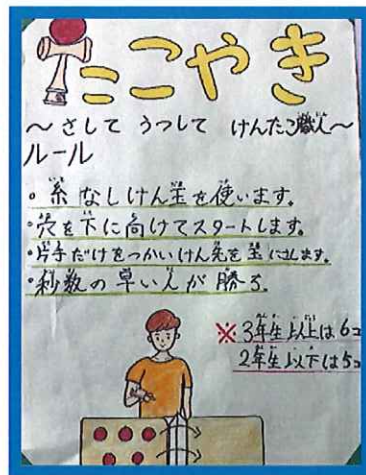 たこやき
～さして うつして けんたこ職人～
ルール
・糸なしけん玉を使います。
・穴を下に向けてスタートします。
・片手だけをつかいけん先を玉にさします。
・秒数の早い人が勝ち。
※3年生以上は6コ
2年生以下は5コ